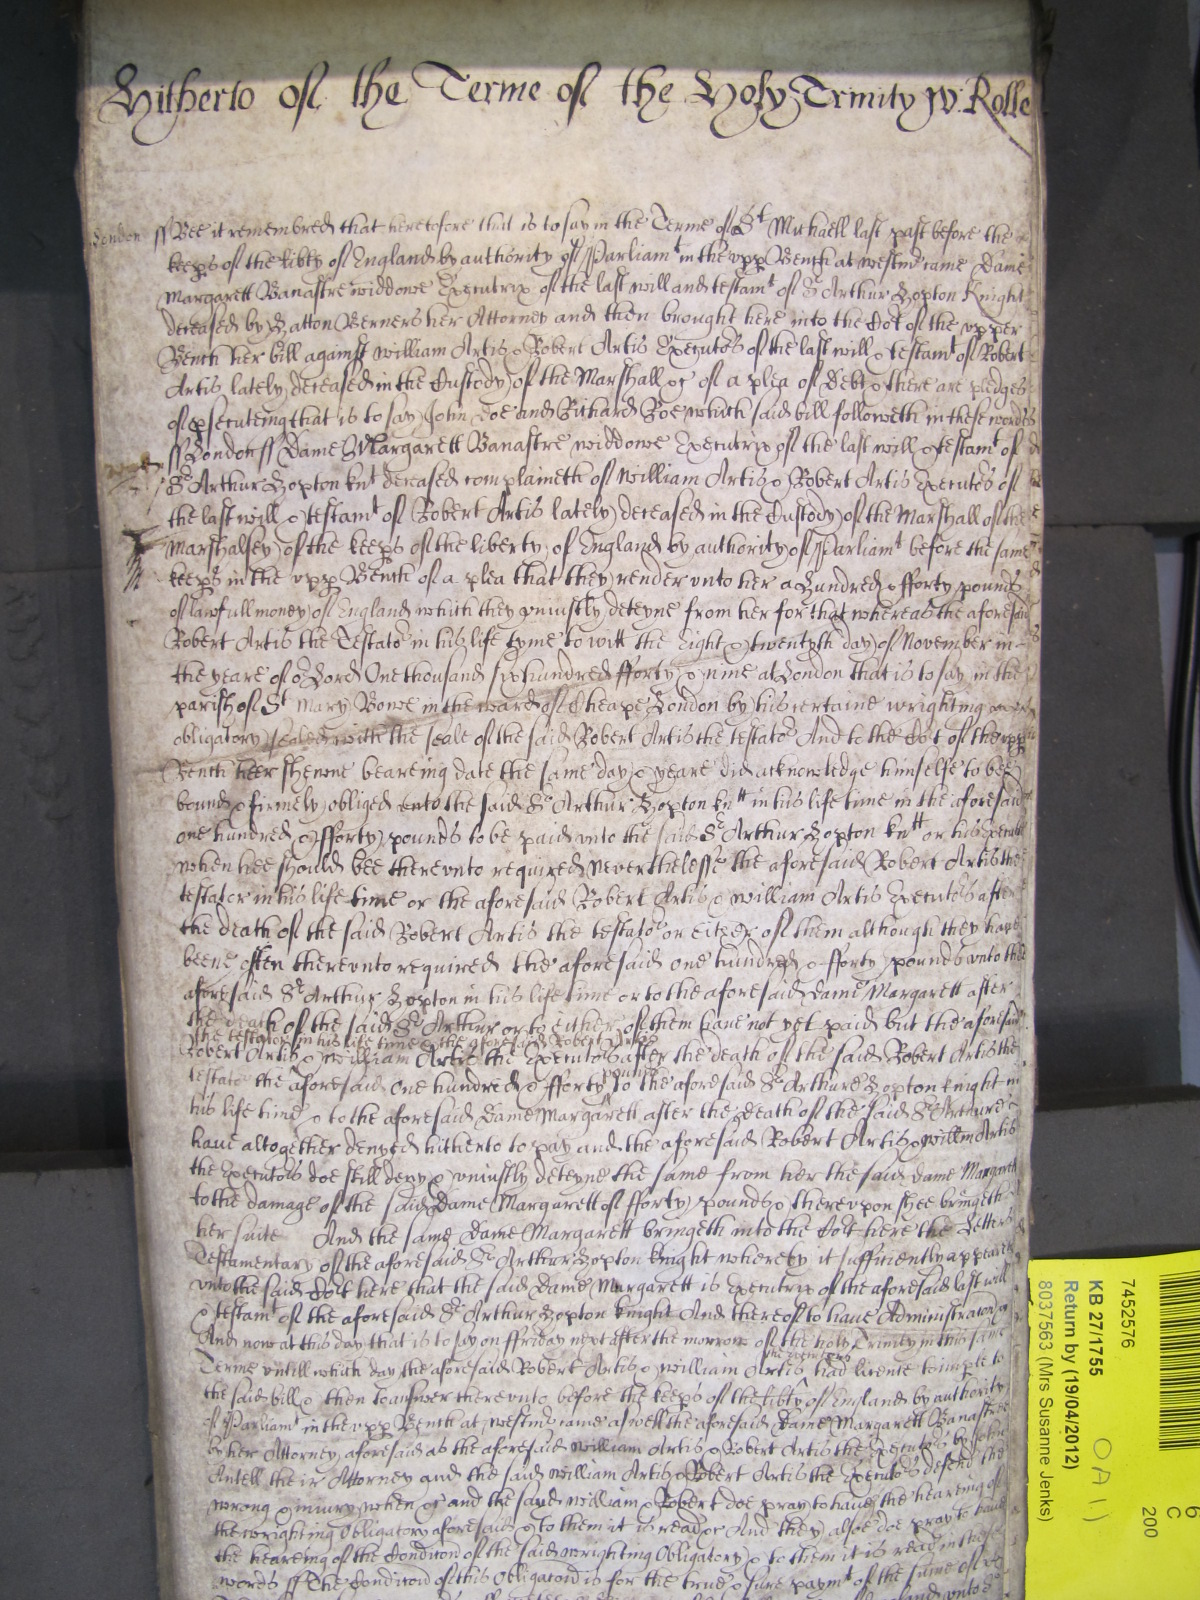 Hitherto of the Terme of the Holy Trinity W: Rolle
London ss Bee it remembred that heretofore that is to say in the Terme of St Michaell last past before the
keeps of the libty of England by authority of Parliamt in the upp Bench at westmr came Dame
Margarett Banastre widdowe Executrix of the last will and testamt of Sr Arthur Hopton Knight
deceased by Hatton Berners her Attorney and then brought here into the Cot of the upper
Bench her bill against william Artis & Robert Artis Executors of the last will & testamt of Robert
Artis lately deceased in the Custody of the Marshall &c of a plea of Debt & there are pledges
of psecuteing that is to say John Doe and Richard Roe which said bill followeth in these wordes
ss London ss Dame Margarett Banastre widdowe Executrix of the last will & testamt of
Sr Arthur Hopton knt deceased complaineth of william Artis & Robert Artis Executors of
the last will & testamt of Robert Artis lately deceased in the Custody of the Marshall of the
Marshalsey of the keeps of the liberty of England by authority of Parliamt before the same
keeps in the upp Bench of a plea that they render unto her a hundred & fforty pounds
of lawfull money of England which they uniustly deteyne from her for that whereas the aforesaid
Robert Artis the Testator in his life tyme to witt the Eight & twentyth day of November in
the yeare of or Lord One thousand six hundred fforty & nine at London that is to say in the
parish of St Mary Bowe in the ward of Cheape London by his certaine wrighting
obligatory sealed with the seale of the said Robert Artis the testator And to the Cot of the upp
Bench heer shewne beareing date the same day & yeare did acknowledge himselfe to bee
bound & firmely obliged unto the said Sr Arthur Hopton kntt in his life time in the aforesaid
one hundred & fforty pounds to be paid unto the said Sr Arthur Hopton kntt or his
when hee should bee thereunto required Neverthelesse the aforesaid Robert Artis the
testator in his life time or the aforesaid Robert Artis & william Artis Executors after
the death of the said Robert Artis the testator or either of them although they have
beene often thereunto required the aforesaid one hundred & fforty pounds unto the
aforesaid Sr Arthur Hopton in his life time or to the aforesaid Dame Margarett after
the death of the said Sr Arthur or to either of them have not yet paid but the aforesaid
the testator in his life time & the aforesaid Robert Artis
Robert Artis & william Artis the Executors after the death of the said Robert Artis the
testator the aforesaid one hundred & fforty pounds to the aforesaid Sr Arthure Hopton knight in
his life time & to the aforesaid Dame Margarett after the death of the said Sr Arthure
have altogether denyed hitherto to pay and the aforesaid Robert Artis & willm Artis
the Executors doe still deny & uniustly deteyne the same from her the said Dame Margarett
to the damage of the said Dame Margarett of fforty pounds & thereupon shee bringeth
her suite And the same Dame Margarett bringeth into the Cot here the Letters
Testamentary of the aforesaid Sr Arthur Hopton knight whereby it sufficiently appeares
unto the said Cot here that the said Dame Margarett is Executrix of the aforesaid last will
& testamt of the aforesaid Sr Arthur Hopton knight And thereof to have Administracon &c
And now at this day that is to say on ffriday next after the morrow of the holy Trinity in this same
the Executors
Terme untill which day the aforesaid Robert Artis & william Artis had licence to imple to
the said bill & then to answer thereunto before the keeps of the libty of England by authority
of Parliamt in the upp Bench at westmr came aswell the aforesaid Dame Margarett Banastre
by her Attorney aforesaid as the aforesaid william Artis & Robert Artis the Executors by
Antell their Attorney and the said william Artis & Robert Artis the Executors defend the
wrong & iniury when &c and the said william & Robert doe pray to have the heareing of
the wrighting Obligatory aforesaid & to them it is read &c And they alsoe doe pray to have
the heareing of the Condicon of the said wrighting Obligatory & to them it is read in these
words ss The Condicon of this Obligacon is for the true & sure paymt of the same of
7452576
KB 27/1755
Return by (19/04/2012)
8037563 (Mrs Susanne Jenks)
OA 1)
6
C
200